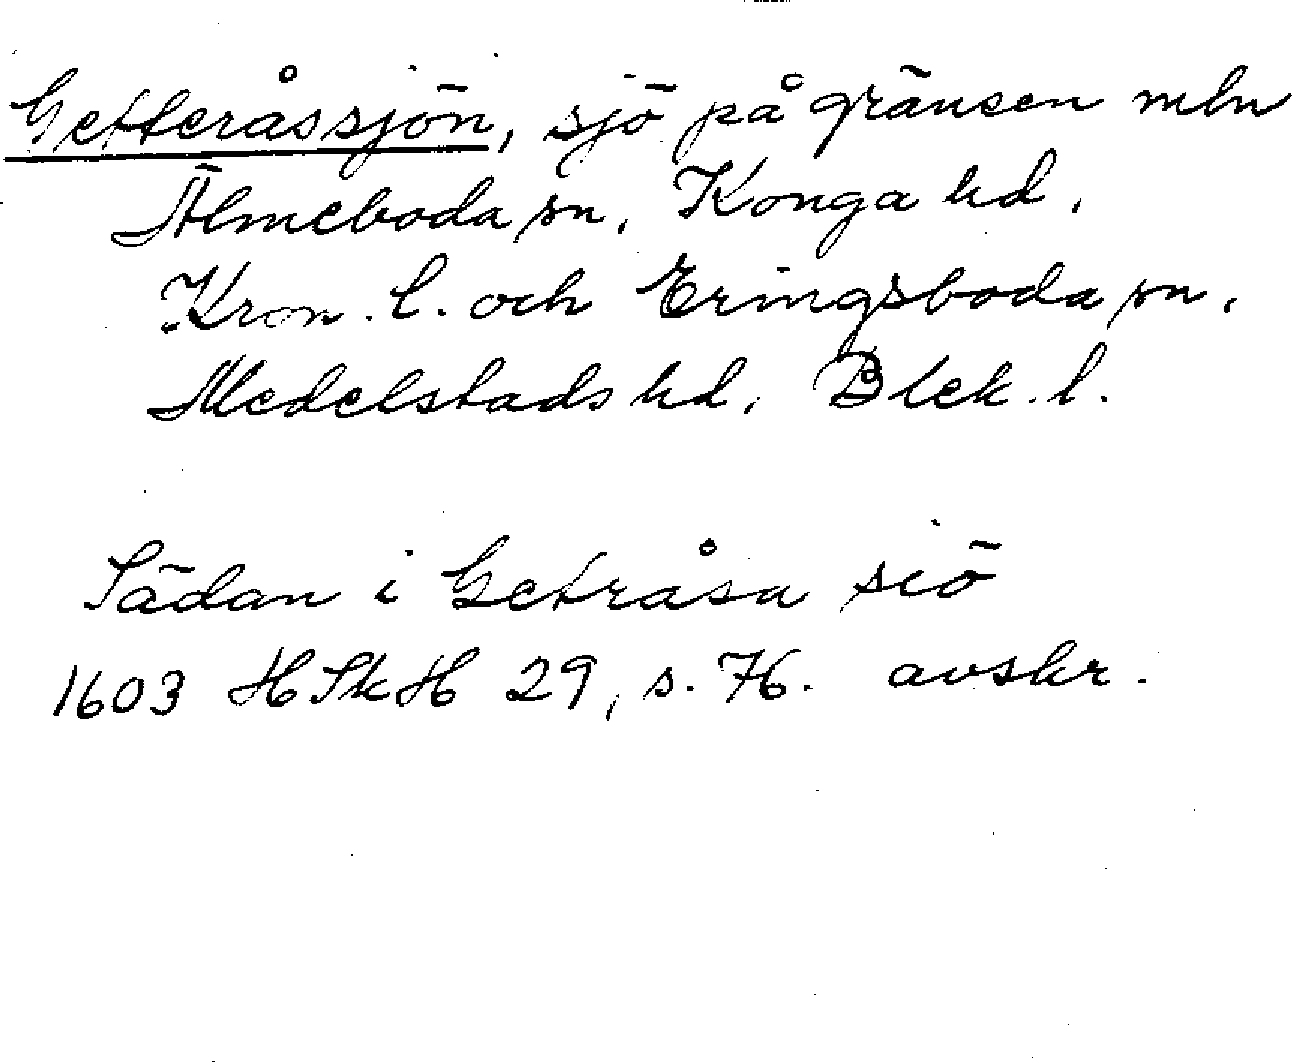 Getteråssjön, sjö på gränsen mln
Älmeboda sn, Konga hd,
Kron. l. och Eringsboda sn,
Medelstads hd, Blek. l.
Sädan i Getråsa siö
1603 HSkH 29, s. 76. avskr.